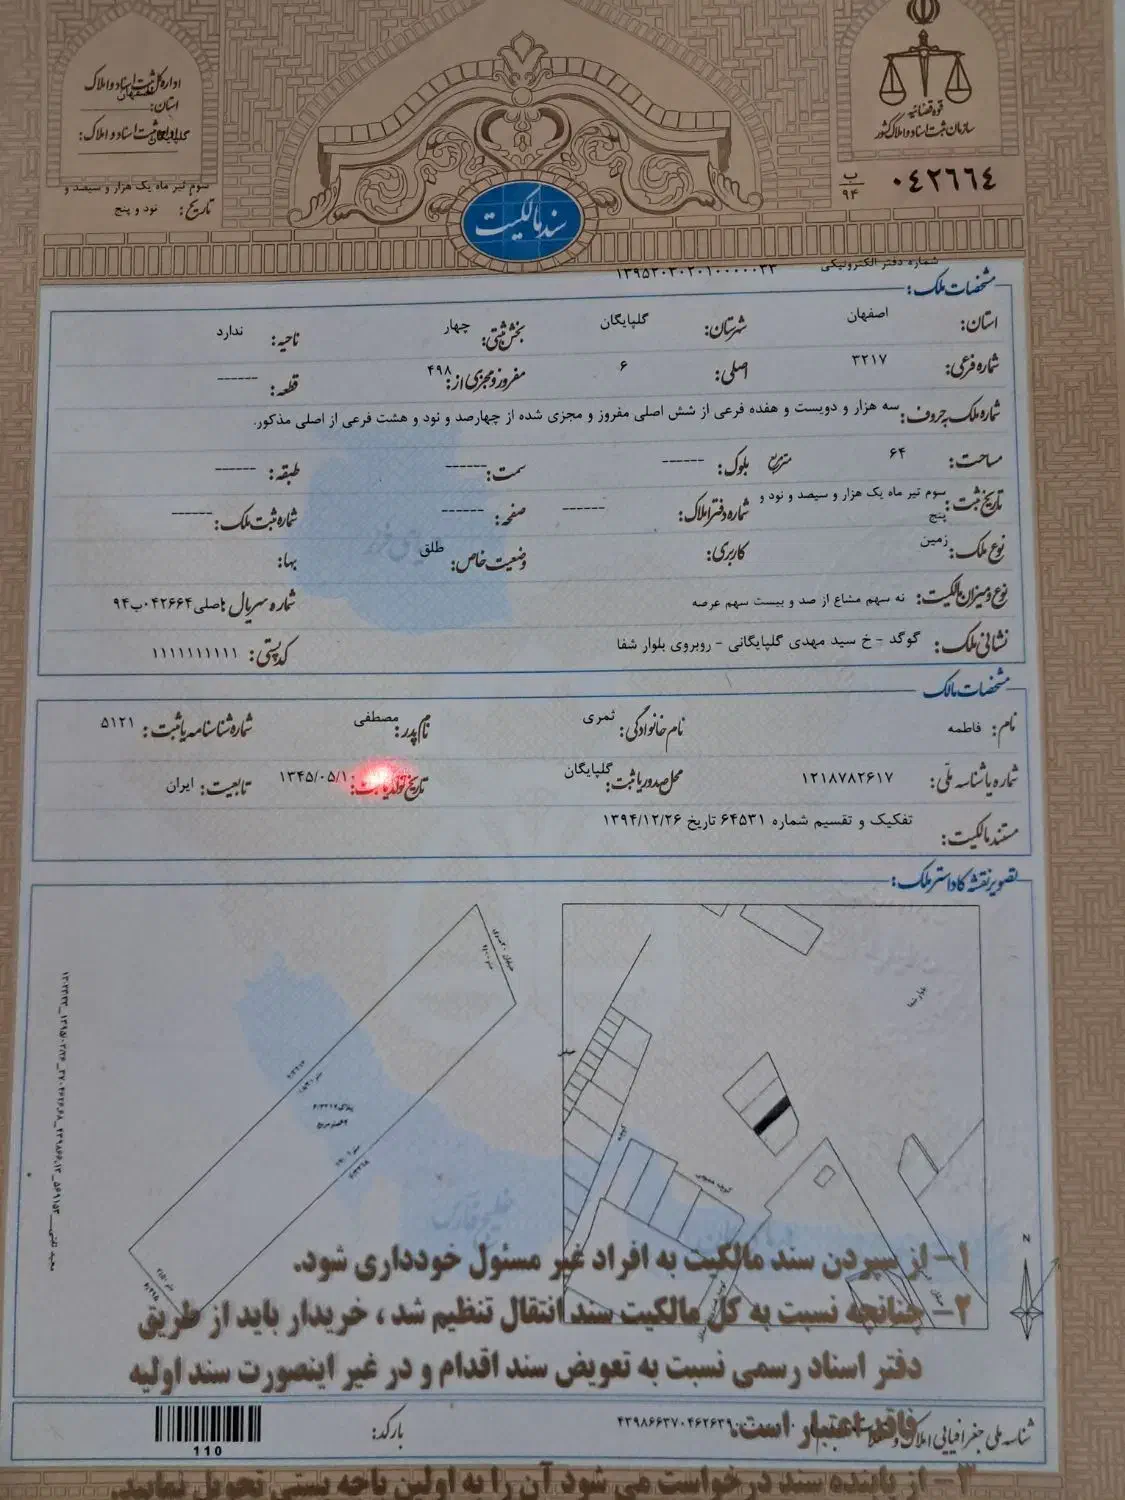 قوه قضائیه
سازمان ثبت اسناد و املاک کشور
۰۴۲۶۶۴ ب ۹۴
اداره کل ثبت اسناد و املاک
استان: اصفهان
اداره ثبت اسناد و املاک: گلپایگان
تاریخ: سوم تیر ماه یک هزار و سیصد و
نود و پنج
سند مالکیت
شماره دفتر الکترونیکی ۱۳۹۵۲۰۳۰۲۰۱۰۰۰۰۰۲۳
مشخصات ملک:
استان: اصفهان شهرستان: گلپایگان بخش ثبتی: چهار ناحیه: ندارد
شماره فرعی: ۳۲۱۷ اصلی: ۶ مفروز و مجزی از: ۴۹۸ قطعه: ------
شماره ملک به حروف: سه هزار و دویست و هفده فرعی از شش اصلی مفروز و مجزی شده از چهارصد و نود و هشت فرعی از اصلی مذکور.
مساحت: ۶۴ متر مربع بلوک: ------ سمت: ------ طبقه: ------
تاریخ ثبت: سوم تیر ماه یک هزار و سیصد و نود و پنج شماره دفتر املاک: ------ صفحه: ------ شماره ثبت ملک: ------
نوع ملک: زمین کاربری: وضعیت خاص: طلق بها:
نوع و میزان مالکیت: نه سهم مشاع از صد و بیست سهم عرصه شماره سریال: اصلی ۰۴۲۶۶۴ب۹۴
نشانی ملک: گوگد - خ سید مهدی گلپایگانی - روبروی بلوار شفا کد پستی: ۱۱۱۱۱۱۱۱۱۱
مشخصات مالک
نام: فاطمه نام خانوادگی: ثمری نام پدر: مصطفی شماره شناسنامه یا ثبت: ۵۱۲۱
شماره یا شناسه ملی: ۱۲۱۸۷۸۲۶۱۷ محل صدور یا ثبت: گلپایگان تاریخ تولد یا ثبت: ۱۳۴۵/۰۵/۱۰ تابعیت: ایران
مستند مالکیت: تفکیک و تقسیم شماره ۶۴۵۳۱ تاریخ ۱۳۹۴/۱۲/۲۶
تصویر نقشه کاداستر ملک:
بلوار شفا
کوچه
N
خلیج فارس
۱- از سپردن سند مالکیت به افراد غیر مسئول خودداری شود.
۲- چنانچه نسبت به کل مالکیت سند انتقال تنظیم شد ، خریدار باید از طریق
دفتر اسناد رسمی نسبت به تعویض سند اقدام و در غیر اینصورت سند اولیه
فاقد اعتبار است.
شناسه ملی جغرافیایی املاک و مستغلات:
بارکد:
110
۳- از یابنده سند درخواست می شود آن را به اولین باجه پستی تحویل نمایند.